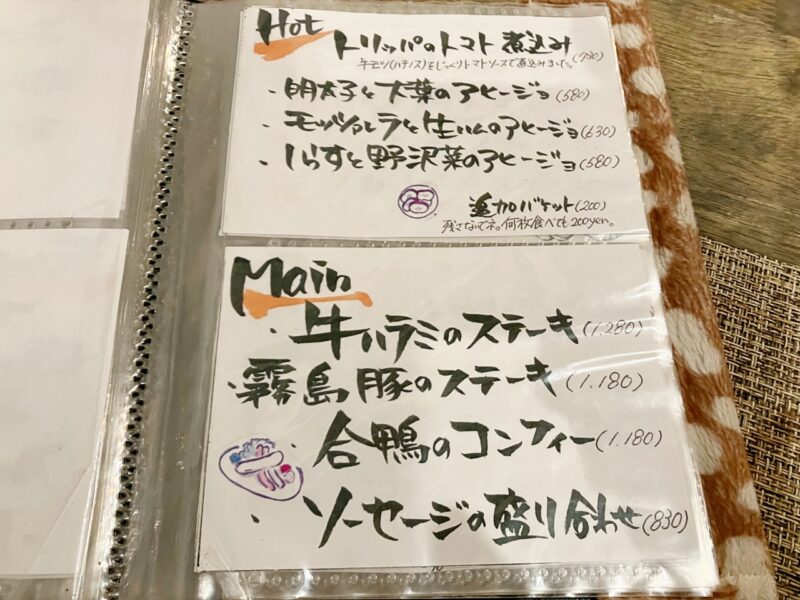 Hot
トリッパのトマト煮込み(720)
牛モツ(ハチノス)をじっくりトマトソースで煮込みました。
・明太子と大葉のアヒージョ(580)
・モッツァレラと生ハムのアヒージョ(630)
・しらすと野沢菜のアヒージョ(580)
追加バケット(200)
残さないでネ。何枚食べても200yen。
Main
・牛ハラミのステーキ(1.280)
・霧島豚のステーキ(1.180)
・合鴨のコンフィー(1.180)
・ソーセージの盛り合わせ(830)